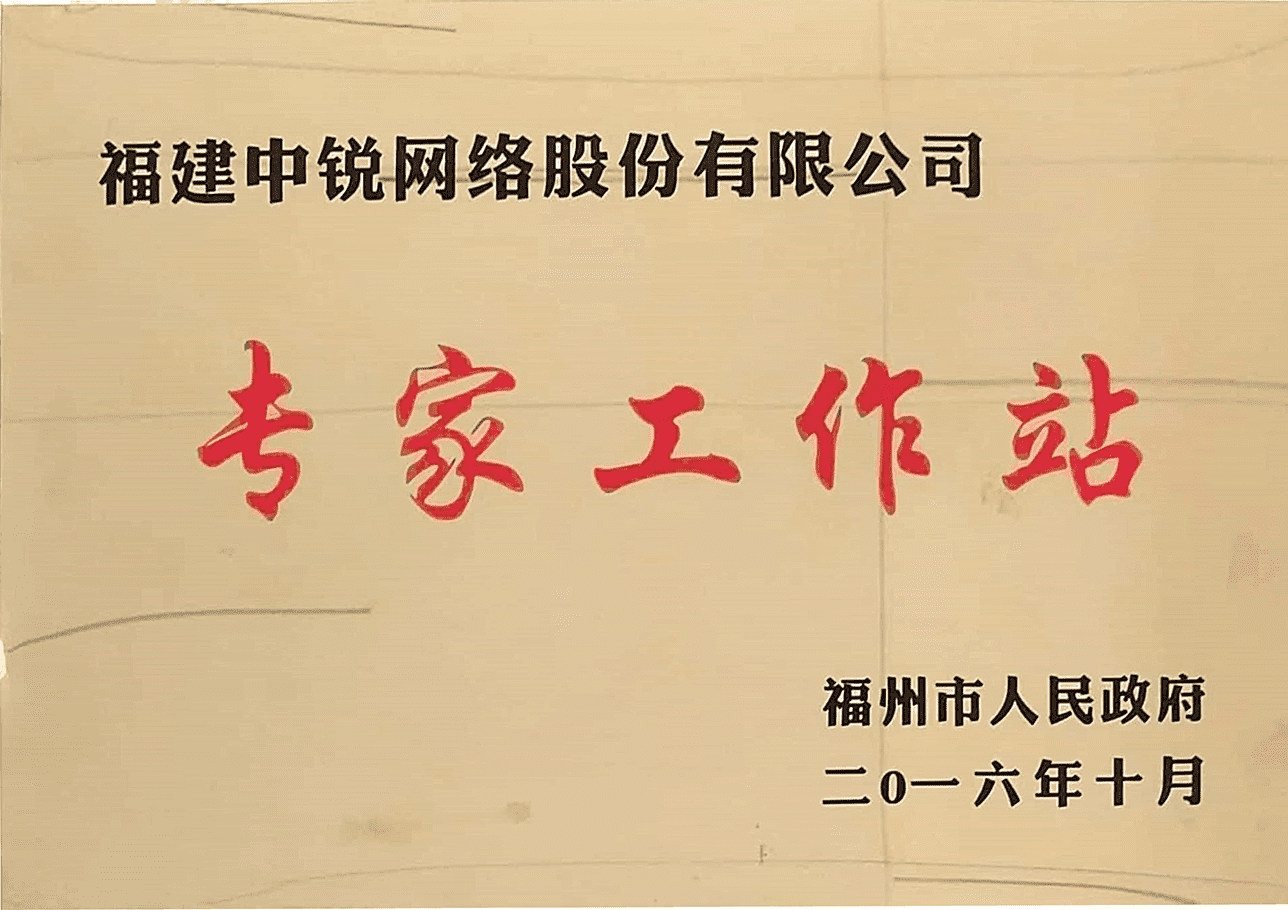 福建中锐网络股份有限公司
专家工作站
福州市人民政府
二0一六年十月